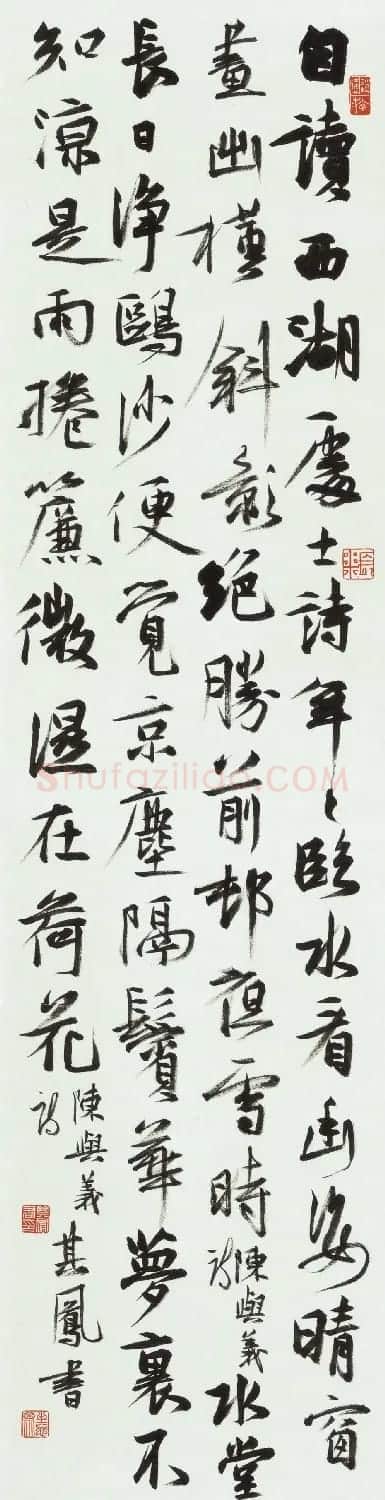 自讀西湖處士詩年々臨水看幽姿晴窗
畫出橫斜影絕勝前邨夜雪時陳與義詩水堂
長日淨鷗沙便覺京塵隔鬢華夢裏不
知涼是雨捲簾微濕在荷花陳與義詩其鳳書
Shufaziliao.COM